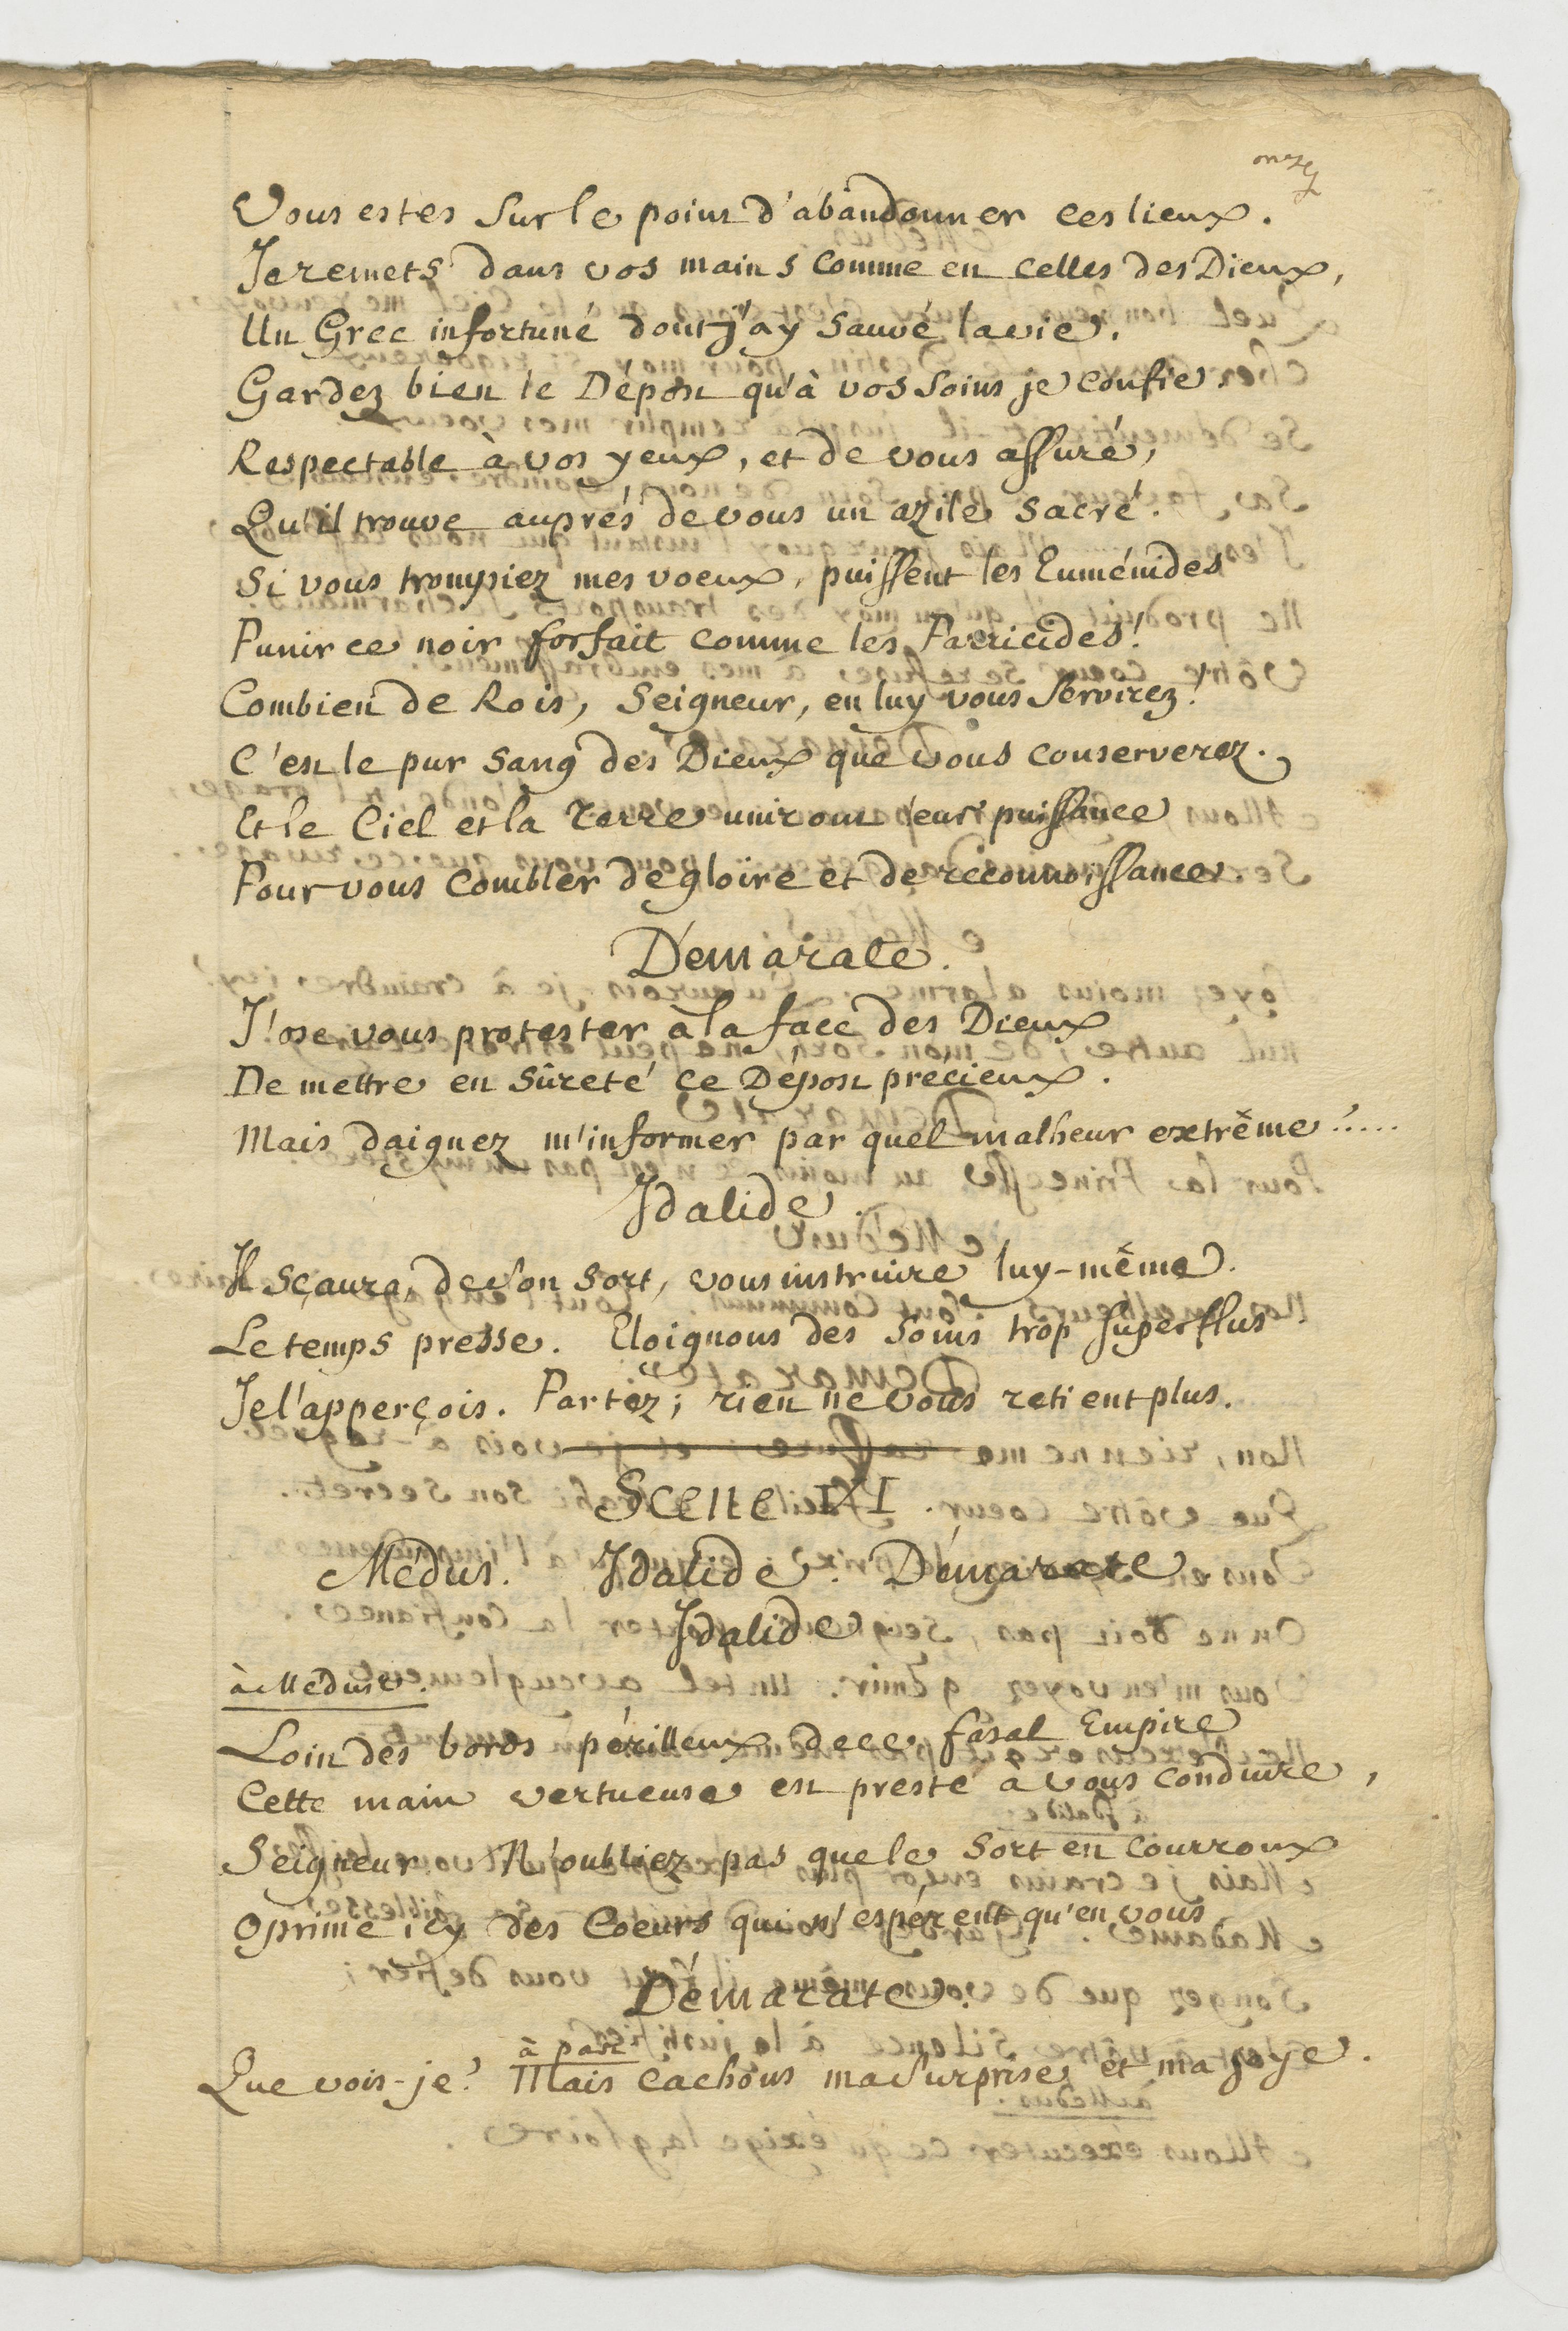 Vous estes sur le point d'abandonner ces lieux.
Je remets dans vos mains comme en celles des Dieux,
Un Grec infortuné dont j'ay sauvé la vie.
Gardez bien le Dépost qu'à vos soins je confie.
Respectable à vos yeux, et de vous assuré,
Qu'il trouve auprés de vous un azile sacré.
Si vous trompiez mes voeux, puissent les Euménides
Punir ce noir forfait comme les Parricides!
Combien de Rois, Seigneur, en luy vous servirez!
C'est le pur sang des Dieux que vous conserverez.
Et le Ciel et la Terre uniront leur puissance
Pour vous combler de gloire et de reconnoissance.
Démarate.
J'ose vous protester à la face des Dieux
De mettre en sûreté ce Dépost précieux.
Mais daignez m'informer par quel malheur extrême.....
Idalide.
Il sçaura, de son sort, vous instruire luy-même.
Le temps presse. Eloignons des soins trop superflus
Je l'apperçois. Partez; rien ne vous retient plus.
Scene XI
Médus. Idalide. Démarate
Idalide
à Médus.
Loin des bords périlleux de ce fatal Empire
Cette main vertueuse est preste à vous conduire,
Seigneur. N'oubliez pas que le sort en courroux
Oprime icy des Coeurs qui n'espérent qu'en vous.
Démarate.
à part
Que vois-je? Mais cachons ma surprise, et ma joye.